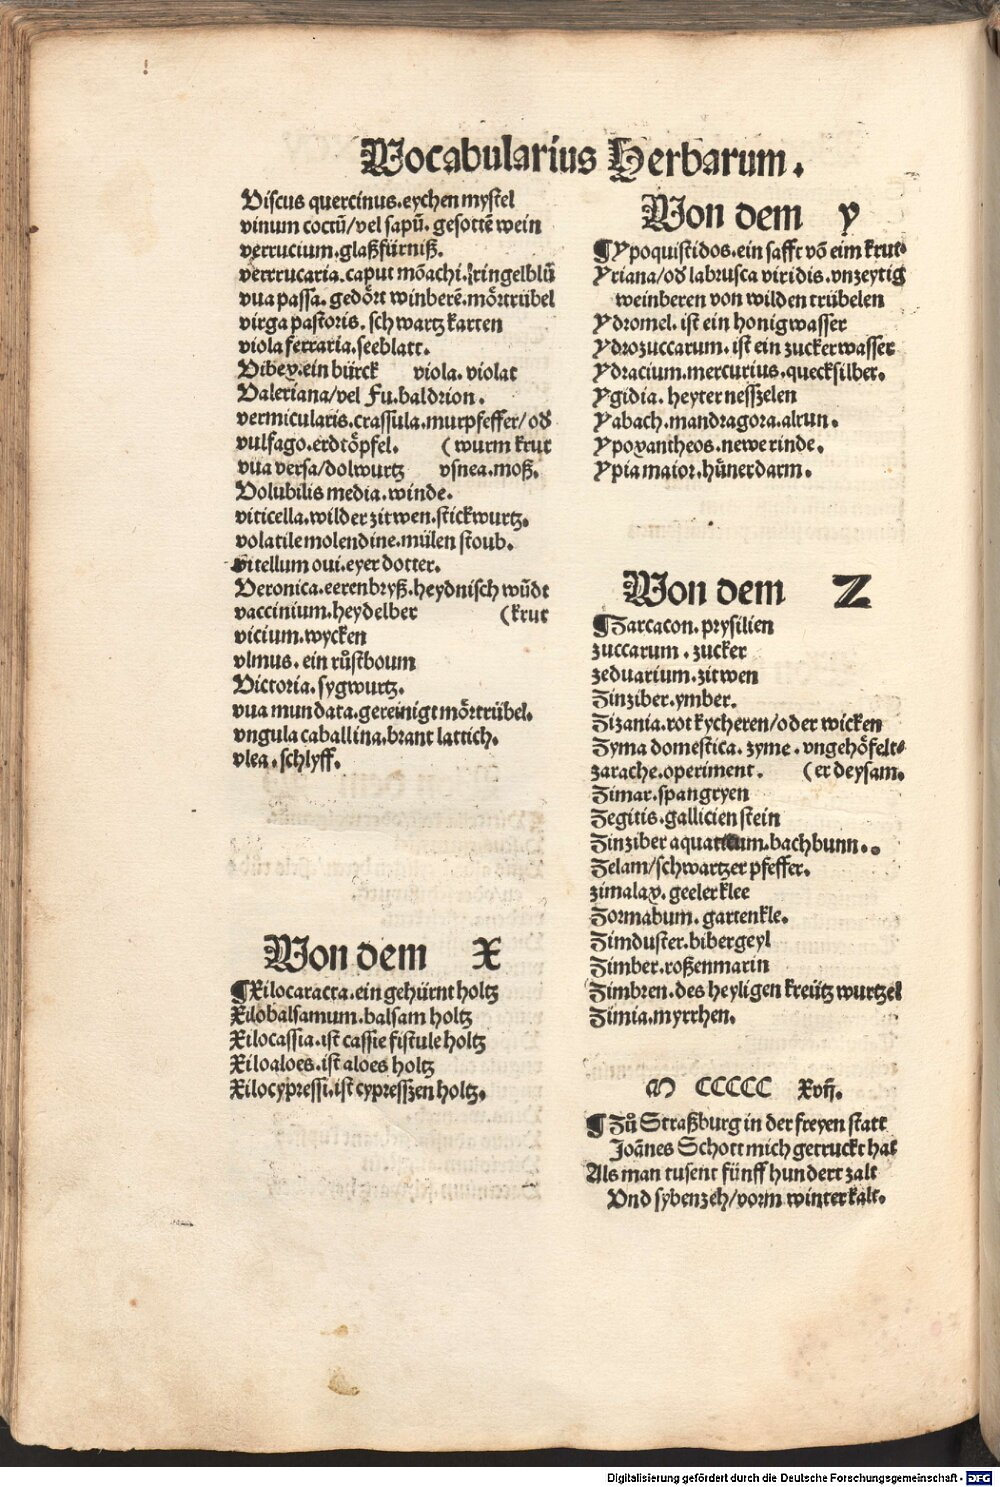 Vocabularius Herbarum.
Viscus quercinus. eychen mystel
vinum coctū/vel sapū. gesottē wein
verrucium. glaßfürniß.
verrrucaria. caput mōachi. ringelblū
vua passa. gedört winberē. mörtrübel
virga pastoris. schwartz karten
viola ferraria. seeblatt.
Vibex. ein bürck viola. violat
Valeriana/vel Fu. baldrion.
vermicularis. crassula. murpfeffer/od
vulfago. erdtöpfel. (wurm krut
vua versa/dolwurtz vsnea. moß.
Volubilis media. winde.
viticella. wilder zitwen. stickwurtz.
volatile molendine. mülen stoub.
vitellum oui. eyer dotter.
Veronica. eerenbryß. heydnisch wūdt
vaccinium. heydelber (krut
vicium. wycken
vlmus. ein růstboum
Victoria. sygwurtz.
vua mundata. gereinigt mörtrübel.
vngula caballina. brant lattich.
vlea. schlyff.
Von dem X
¶Xilocaracta. ein gehürnt holtz
Xilobalsamum. balsam holtz
Xilocassia. ist cassie fistule holtz
Xiloaloes. ist aloes holtz
Xilocypressi. ist cypresszen holtz.
Von dem y
¶Ypoquistidos. ein safft vō eim krut.
Yriana/od labrusca viridis. vnzeytig
weinberen von wilden trübelen
Ydromel. ist ein honigwasser
Ydrozuccarum. ist ein zuckerwasser
Ydracium. mercurius. quecksilber.
Ygidia. heyternesszelen
Yabach. mandragora. alrun.
Ypoxantheos. newe rinde.
Ypia maior. hünerdarm.
Von dem Z
¶Zarcacon. prysilien
zuccarum. zucker
zeduarium. zitwen
Zinziber. ymber.
Zizania. rot kycheren/oder wicken
Zyma domestica. zyme. vngehöfelt-
zarache. operiment. (er deysam.
Zimar. spangryen
Zegitis. gallicien stein
Zinziber aquaticum. bachbunn.
Zelam/schwartzer pfeffer.
zimalax. geeler klee
Zormabum. gartenkle.
Zimduster. bibergeyl
Zimber. roßenmarin
Zimbren. des heyligen kreütz wurtzel
Zimia. myrrhen.
M CCCCC Xvij.
¶Zů Straßburg in der freyen statt
Joānes Schott mich getruckt hat
Als man tusent fünff hundert zalt
Vnd sybenzeh/vorm winter kalt.
Digitalisierung gefördert durch die Deutsche Forschungsgemeinschaft - DFG